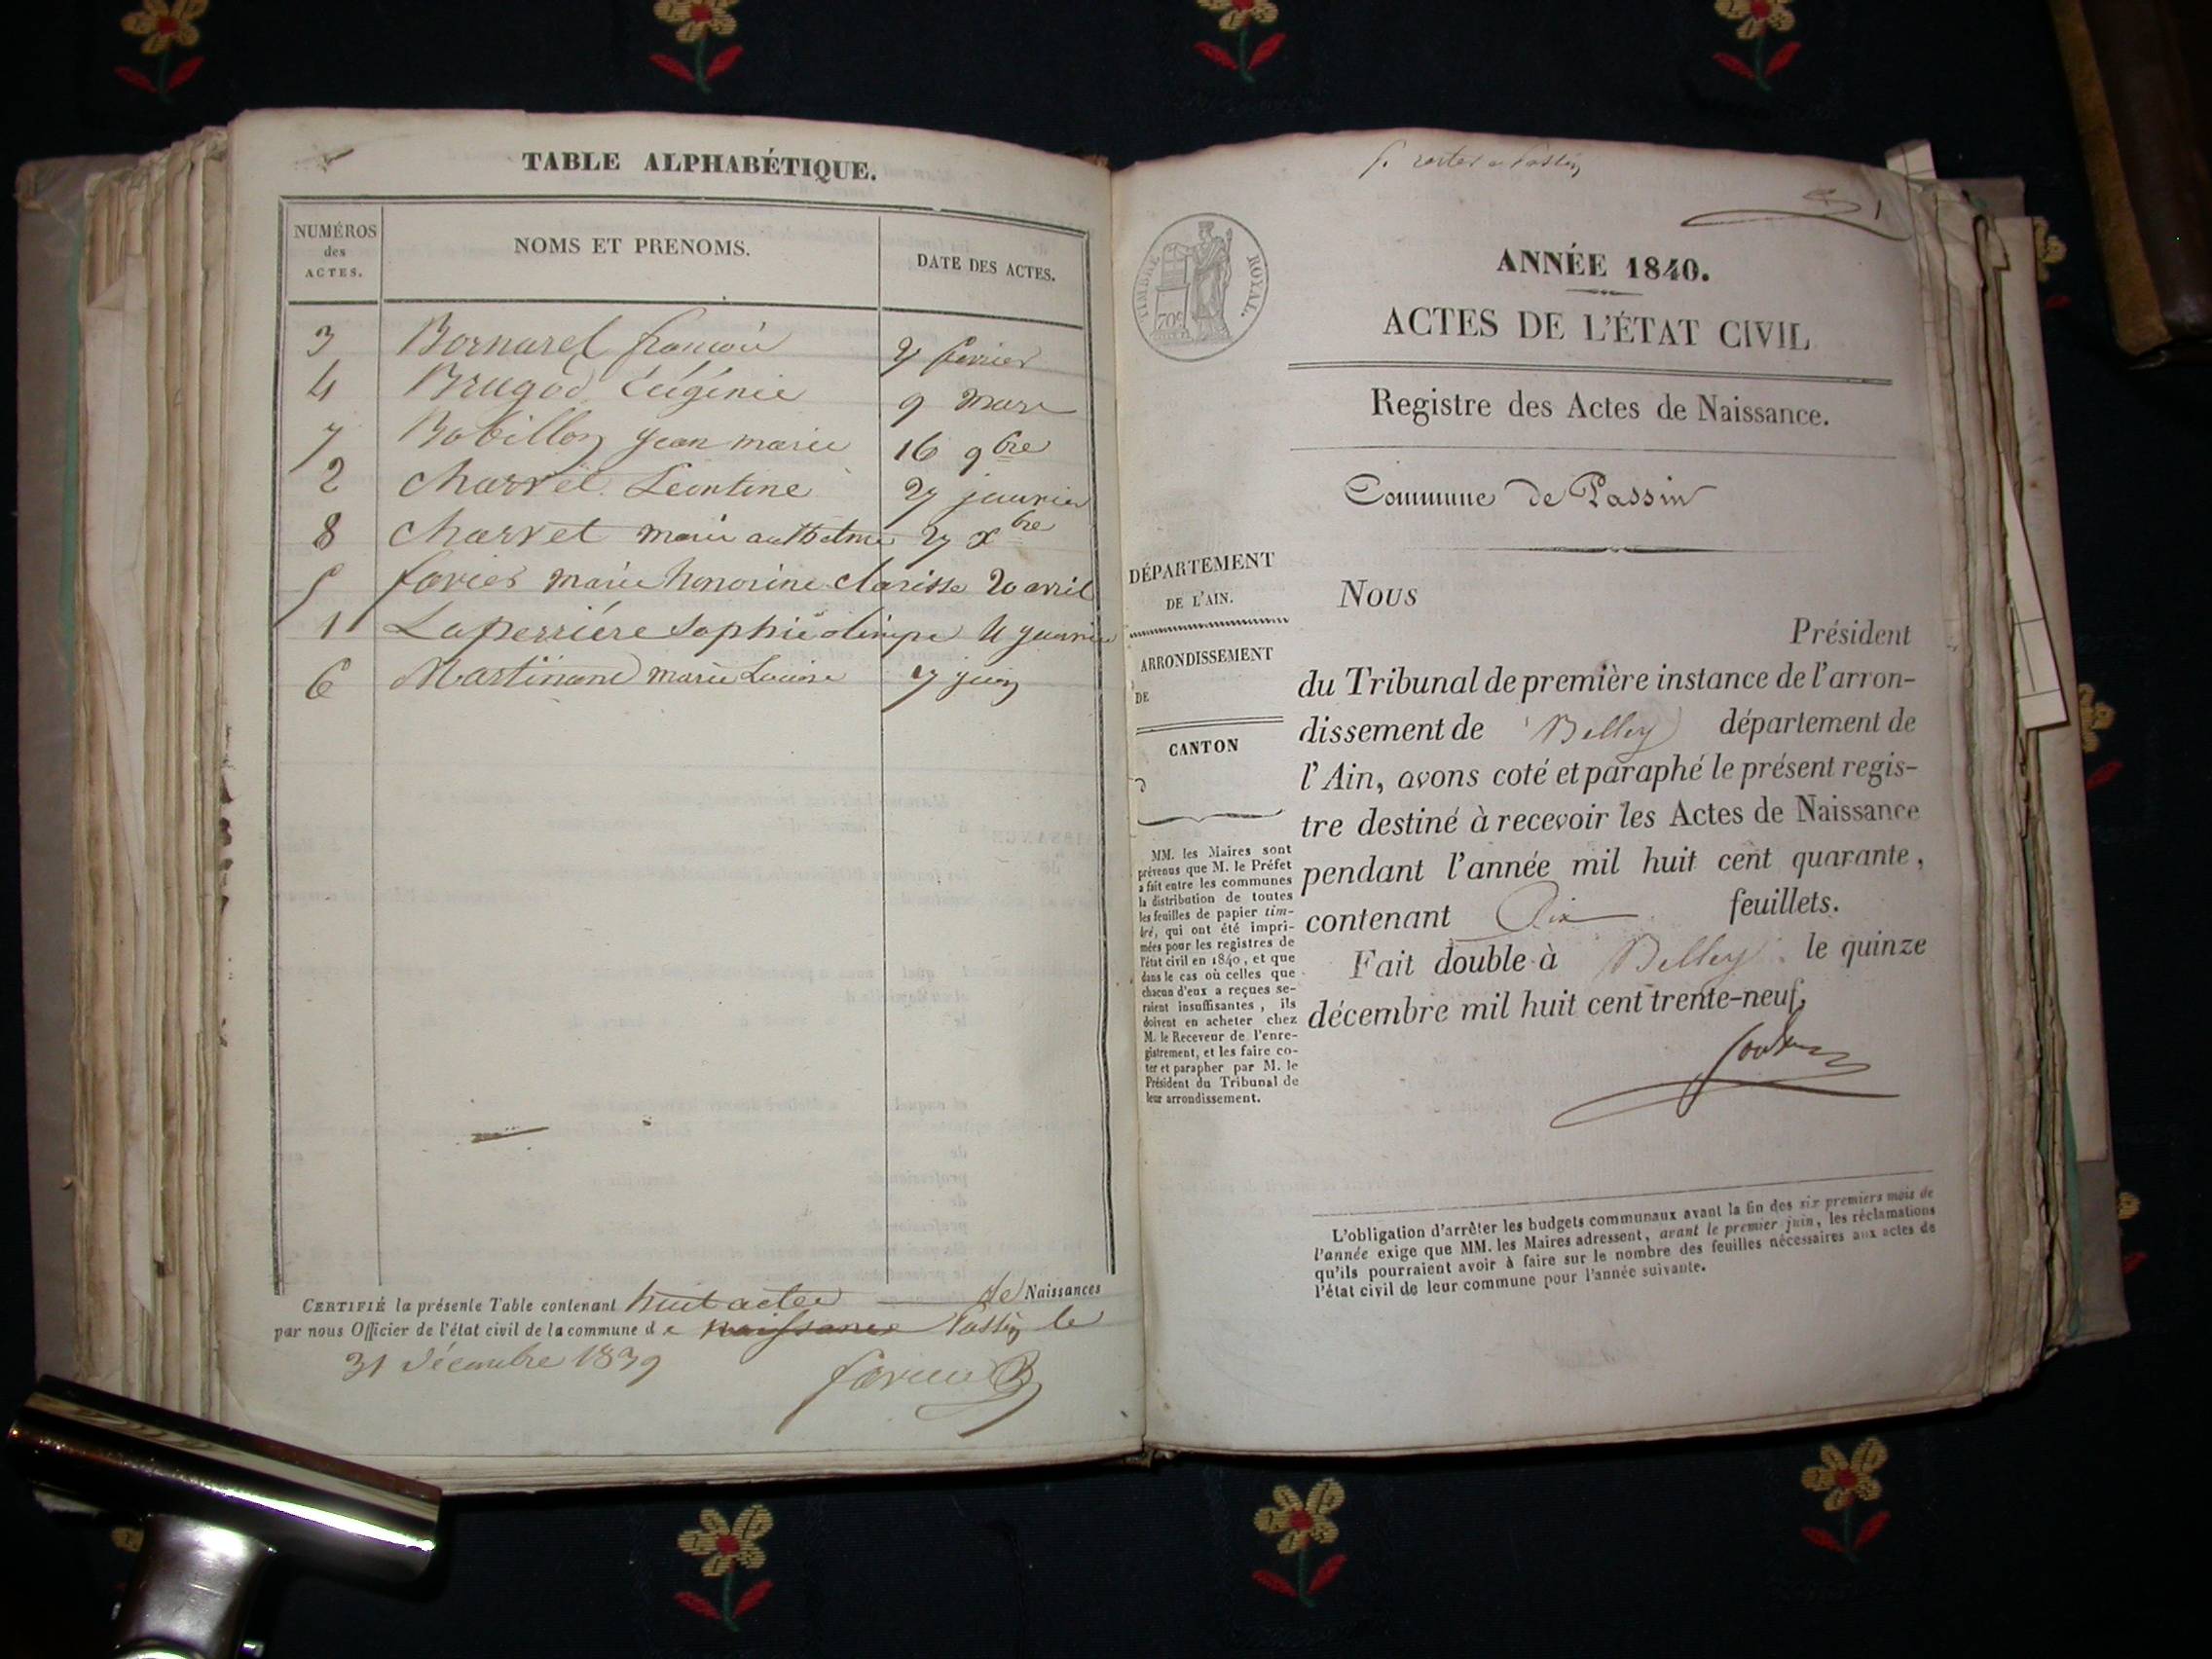 TABLE ALPHABÉTIQUE.
NUMÉROS des ACTES.
NOMS ET PRENOMS.
DATE DES ACTES.
3 Bornarel françois 7 fevrier
4 Brugod Eugénie 9 Mars
7 Bobillon jean marie 16 9bre
2 Charvet Léontine 27 janvier
8 Charvet marie anthelme 27 Xbre
5 favier marie honorine clarisse 20 avril
1 Laperriére Sophie olimpe 4 janvier
6 Martinand marie Louise 7 juin
CERTIFIÉ la présente Table contenant huit actes de Naissances
par nous Officier de l'état civil de la commune de naissance Passin le
31 Décembre 1839
favier
f. Passin
1
TIMBRE ROYAL.
70c
ANNÉE 1840.
ACTES DE L'ÉTAT CIVIL
Registre des Actes de Naissance.
Commune de Passin
DÉPARTEMENT
DE L'AIN.
ARRONDISSEMENT
DE
CANTON
MM. les Maires sont
prévenus que M. le Préfet
a fait entre les communes
la distribution de toutes
les feuilles de papier tim-
bré, qui ont été impri-
mées pour les registres de
l'état civil en 1840, et que
dans le cas où celles que
chacun d'eux a reçues se-
raient insuffisantes, ils
doivent en acheter chez
M. le Receveur de l'enre-
gistrement, et les faire co-
ter et parapher par M. le
Président du Tribunal de
leur arrondissement.
Nous
Président
du Tribunal de première instance de l'arron-
dissement de Belley département de
l'Ain, avons coté et paraphé le présent regis-
tre destiné à recevoir les Actes de Naissance
pendant l'année mil huit cent quarante,
contenant Dix feuillets.
Fait double à Belley le quinze
décembre mil huit cent trente-neuf,
L'obligation d'arrêter les budgets communaux avant la fin des six premiers mois de
l'année exige que MM. les Maires adressent, avant le premier juin, les réclamations
qu'ils pourraient avoir à faire sur le nombre des feuilles nécessaires aux actes de
l'état civil de leur commune pour l'année suivante.